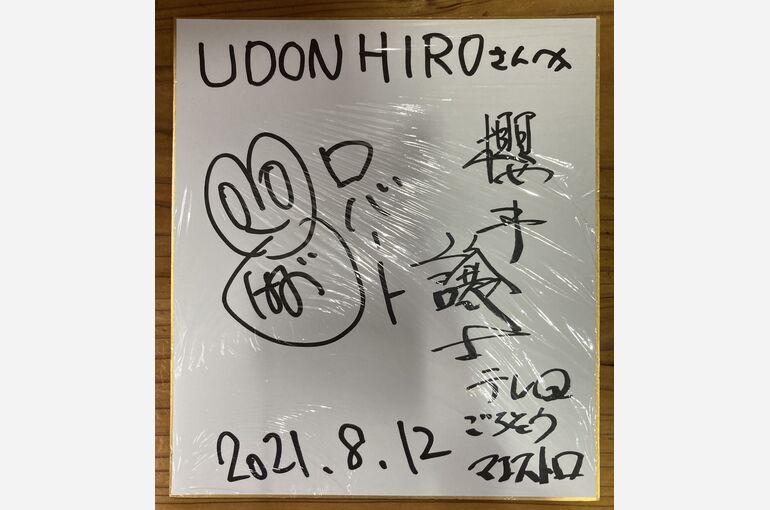 UDON HIROさんへ
ロバート
櫻井
テレQ
ごちそう
マエストロ
2021.8.12